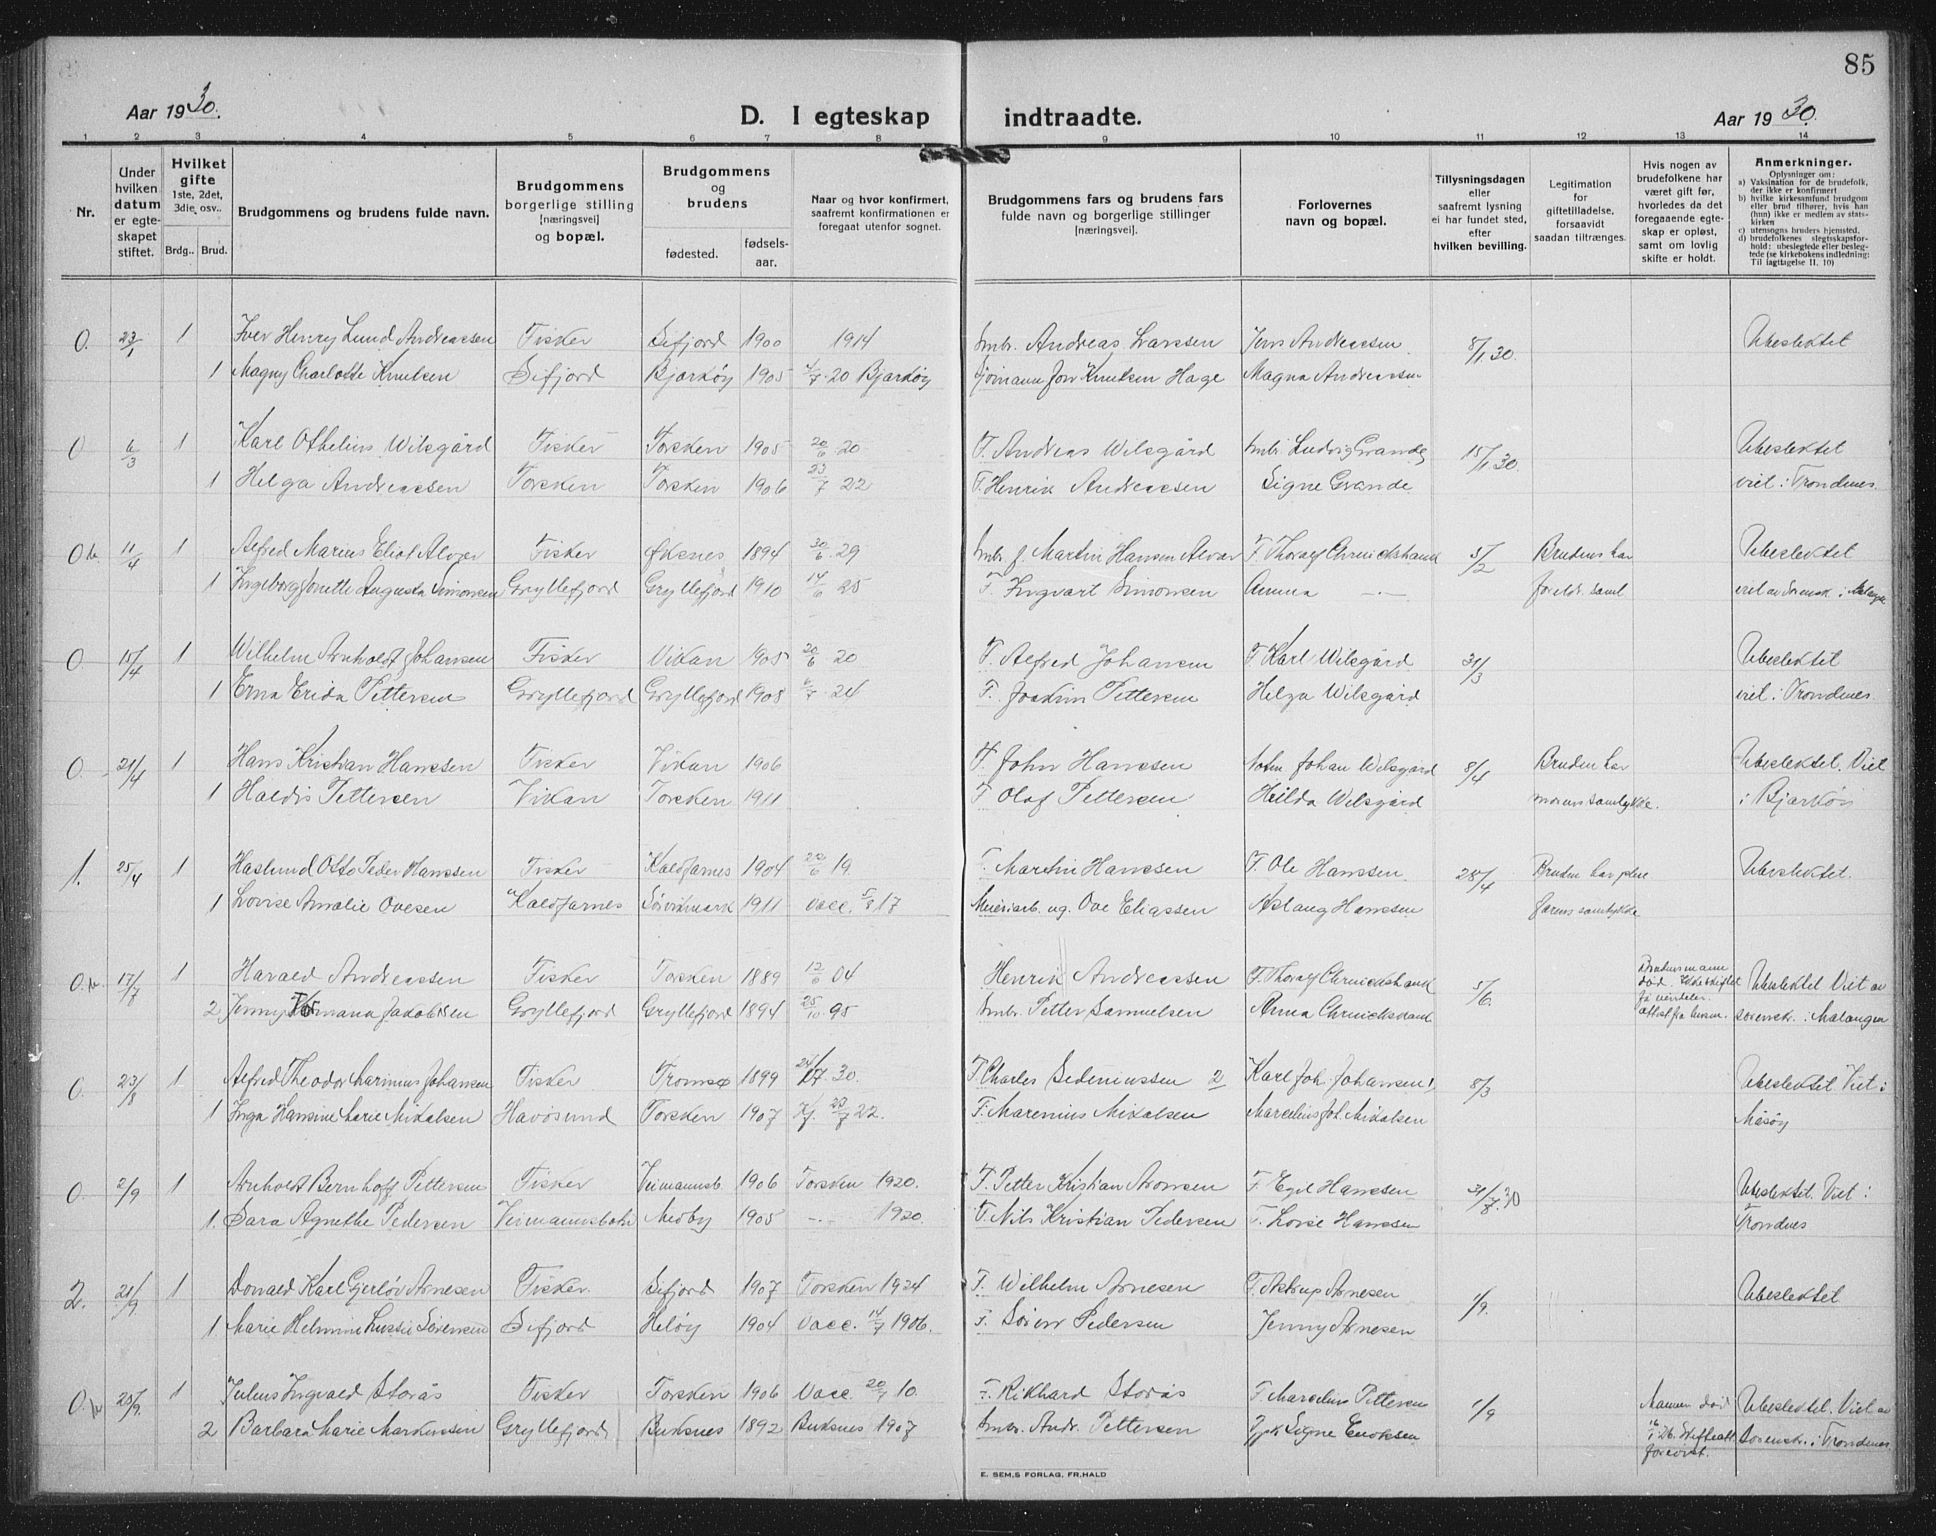 85
Aar 1930.
D. I egteskap indtraadte.
Aar 1930.
1 2 3 4 5 6 7 8 9 10 11 12 13 14
Nr.
Under hvilken datum er egteskapet stiftet.
Hvilket gifte 1ste, 2det, 3die, osv..
Brdg.. Brud.
Brudgommens og brudens fulde navn.
Brudgommens borgerlige stilling [næringsvei] og bopæl.
Brudgommens og brudens
fødested.
fødselsaar.
Naar og hvor konfirmert, saafremt konfirmationen er foregaat utenfor sognet.
Brudgommens fars og brudens fars fulde navn og borgerlige stillinger [næringsvei].
Forlovernes navn og bopæl.
Tillysningsdagen eller saafremt lysning ei har fundet sted, efter hvilken bevilling.
Legitimation for giftetilladelse, forsaavidt saadan tiltrænges.
Hvis nogen av brudefolkene har været gift før, hvorledes da det foregaaende egteskap er opløst, samt om lovlig skifte er holdt.
Anmerkninger.
Oplysninger om:
a) Vaksination for de brudefolk, der ikke er konfirmert
b) hvilke kirkesamfund brudgom eller brud tilhører, hvis han (hun) ikke er medlem av statskirken
c) utensogns bruders hjemsted.
d) brudefolkenes slegtsskapsforhold: ubeslegtede eller beslegtede (se kirkebokens indledning: Til iagttagelse II. 10)
0. 23/1 1 Iver Henry Lund Andreassen Fisker Sifjord 1900 1914 Smbr. Andreas Larssen Jens Andreassen 8/1 30. Ubeslektet
1 Magny Charlotte Knutsen Sifjord Bjarkøy 1905 4/7 20 Bjarkøy Sjømann Jon Knutsen Hage Magna Andreassen
0 6/3 1 Karl Othelius Wilsgård Fisker Torsken 1905 20/6 20 F. Andreas Wilsgård Smbr. Ludvig Grande 15/1 30. Ubeslektet
1 Helga Andreassen Torsken Torsken 1906 23/7 22 F. Henrik Andreassen Signe Grande viet i Trondenes.
0 11/4 1 Alfred Marius Eliot Alvær Fisker Øksnes 1894 30/6 29 Smbr. f. Martin Hansen Alvær F. Thoralf 5/2 Brudens har Ubeslektet
1 Ingeborg Jonette Augusta Simonsen Gryllefjord Gryllefjord 1910 14/6 25 F. Ingvart Simonsen Anna foreldr. saml viet av Sorensk. i
0 15/4 1 Wilhelm Arnholdt Johansen Fisker Vikan 1905 20/6 20 F. Alfred Johansen F. Karl Wilsgård 31/3 Ubeslektet
1 Erna Erida Pettersen Gryllefjord Gryllefjord 1908 6/7 24 F. Joakim Pettersen Helga Wilsgård viet i Trondenes.
0. 21/4 1 Hans Kristian Hanssen Fisker Vikan 1906 F. John Hanssen Johan Wilsgård 8/4 Bruden har Ubeslektet. Viet
1 Haldis Pettersen Vikan Torsken 1911 F. Olaf Pettersen Hilda Wilsgård morens samtykke. i Bjarkøi
1. 25/4 1 Haslund Otto Peder Hanssen Fisker Kaldfarnes 1904 22/6 19. F. Martin Hanssen F. Ole Hanssen 28/4 Bruden har Ubeslektet.
1 Lovise Amalie Ovesen Kaldfarnes Sørreinmark 1911 Vacc. 5/8 17 Meieriarb. ug. Ove Eliassen Aslaug Hanssen farens samtykke
0. 17/7 1 Harald Andreassen Fisker Torsken 1889 12/6 04 Henrik Andreassen F. Thoralf 5/6. Brudens mann død. Ubeslektet Viet av
2 Jenny Jakobsen Gryllefjord Gryllefjord 1894 25/10 95 Smbr. Petter Samuelsen Anna sorenskr. i Malangen
0 23/8 1 Alfred Theodor Marinius Johansen Fisker Tromsø 1899 24/7 30 F. Charles Sedeniussen 2 Karl Joh. Johansen 1) 8/3 Ubeslektet. Viet i
1 Inga Hansine Marie Mikalsen Havøsund Torsken 1907 Kf. 23/7 22. F. Marenius Mikalsen Marcelius Joh. Mikalsen Måsøy
0. 2/9 1 Arnholdt Bernhoff Pettersen Fisker Veimannsb. 1906 Torsken 1920. F. Petter Kristian Aronsen F. Egil Hanssen 31/7.30 Ubeslektet. Viet i
1. Sara Agnethe Pedersen Veimannsbotn Medby 1905 - 1920. F. Nils Kristian Pedersen F. Lovise Hanssen Trondenes
2. 21/9 1 Donald Karl Gjerløv Arnesen Fisker. Sifjord 1907 Torsken 1924 F. Wilhelm Arnesen F. Astrup Arnesen 1/9. Ubeslektet
1 Marie Helmine Lussie Sørensen Sifjord Heløy 1904 Vacc. 14/7 1906. F. Søren Pedersen Jenny Arnesen
0 20/9. 1 Julius Ingvald Storås Fisker Torsken 1906 Vacc. 20/7 10. F. Rikhard Storås F. Marcelius Pettersen 1/9 Mannen død Ubeslektet. Viet av
2 Barbara Marie Markussen Gryllefjord Buksnes 1892 Buksnes 1907 Smbr. Andr. Pettersen Signe Enoksen Skifteatt. forevist. Sorenskr. i Trondenes
E. SEM.S FORLAG, FR.HALD